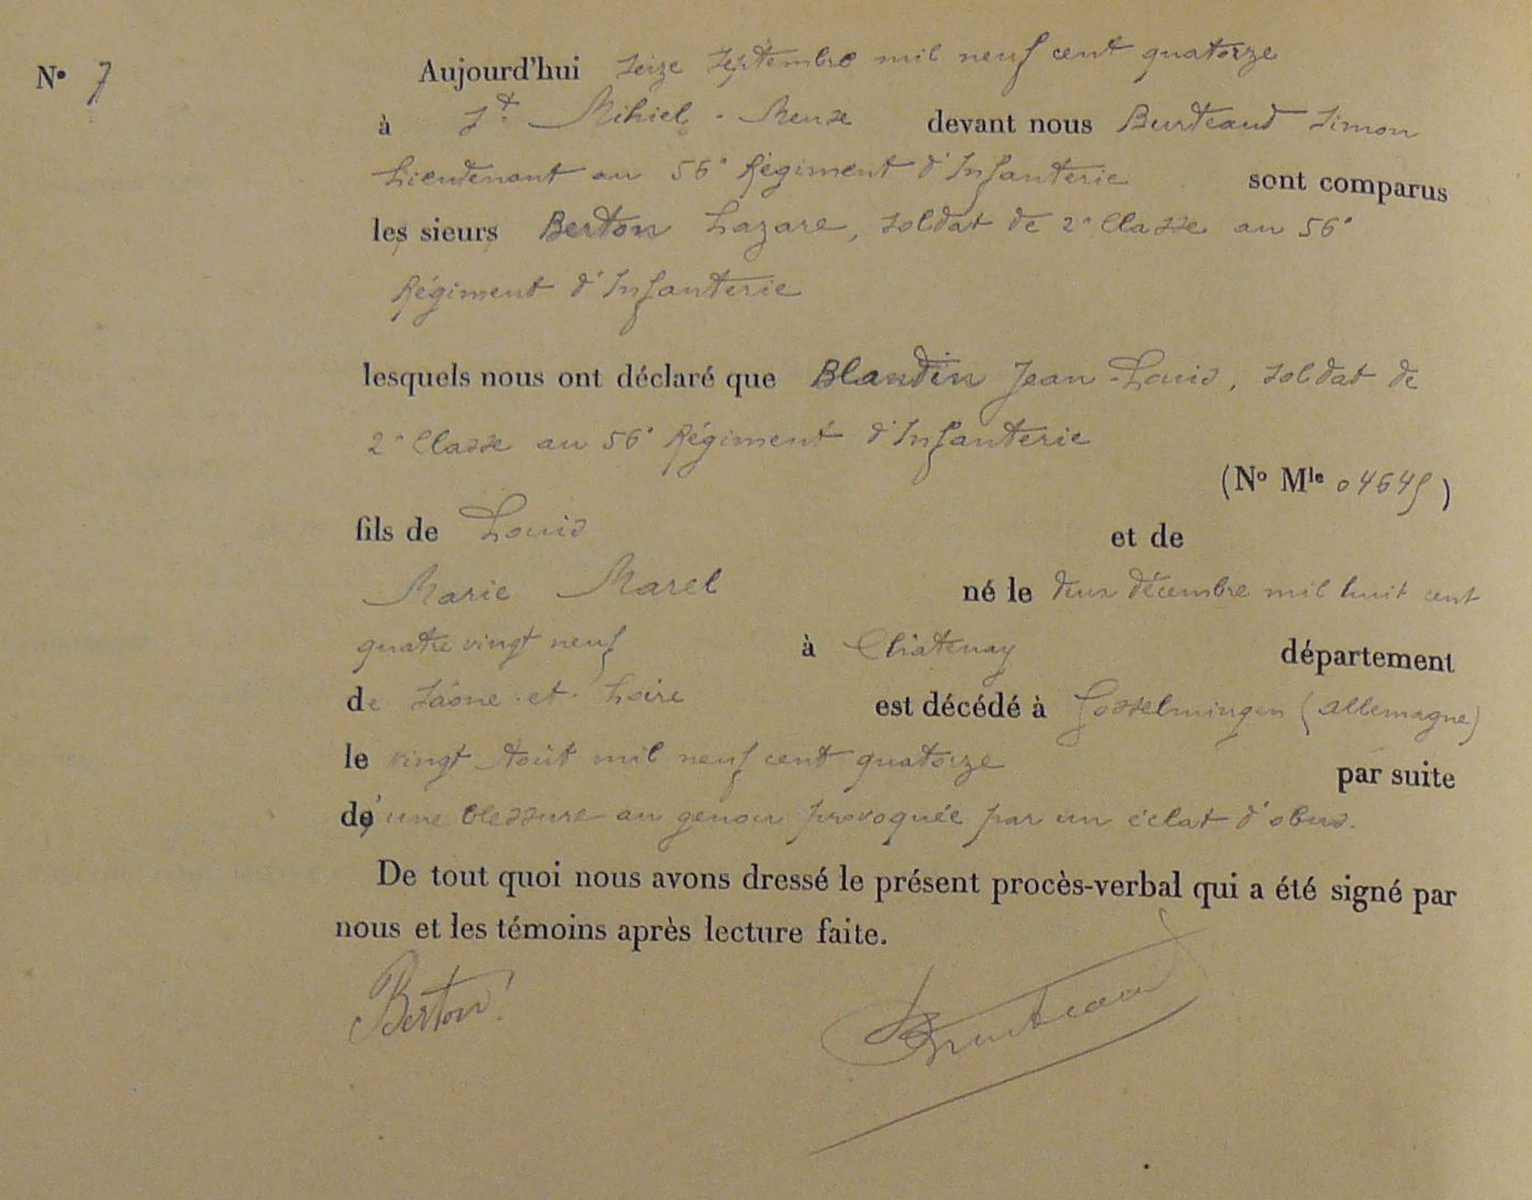 N° 7
Aujourd'hui seize Septembre mil neuf cent quatorze
à St Mihiel - Meuse devant nous Burteaud Simon
Lieutenant au 56e Régiment d'Infanterie sont comparus
les sieurs Berton Lazare, soldat de 2e Classe au 56e
Régiment d'Infanterie
lesquels nous ont déclaré que Blandin Jean-Louis, soldat de
2e Classe au 56e Régiment d'Infanterie
(N° Mle 04645)
fils de Louis et de
Marie Marel né le deux décembre mil huit cent
quatre vingt neuf à Châtenay département
de Saône-et-Loire est décédé à Gosselmingen (Allemagne)
le vingt Août mil neuf cent quatorze par suite
d'une blessure au genou provoquée par un éclat d'obus.
De tout quoi nous avons dressé le présent procès-verbal qui a été signé par
nous et les témoins après lecture faite.
Berton Burteaud